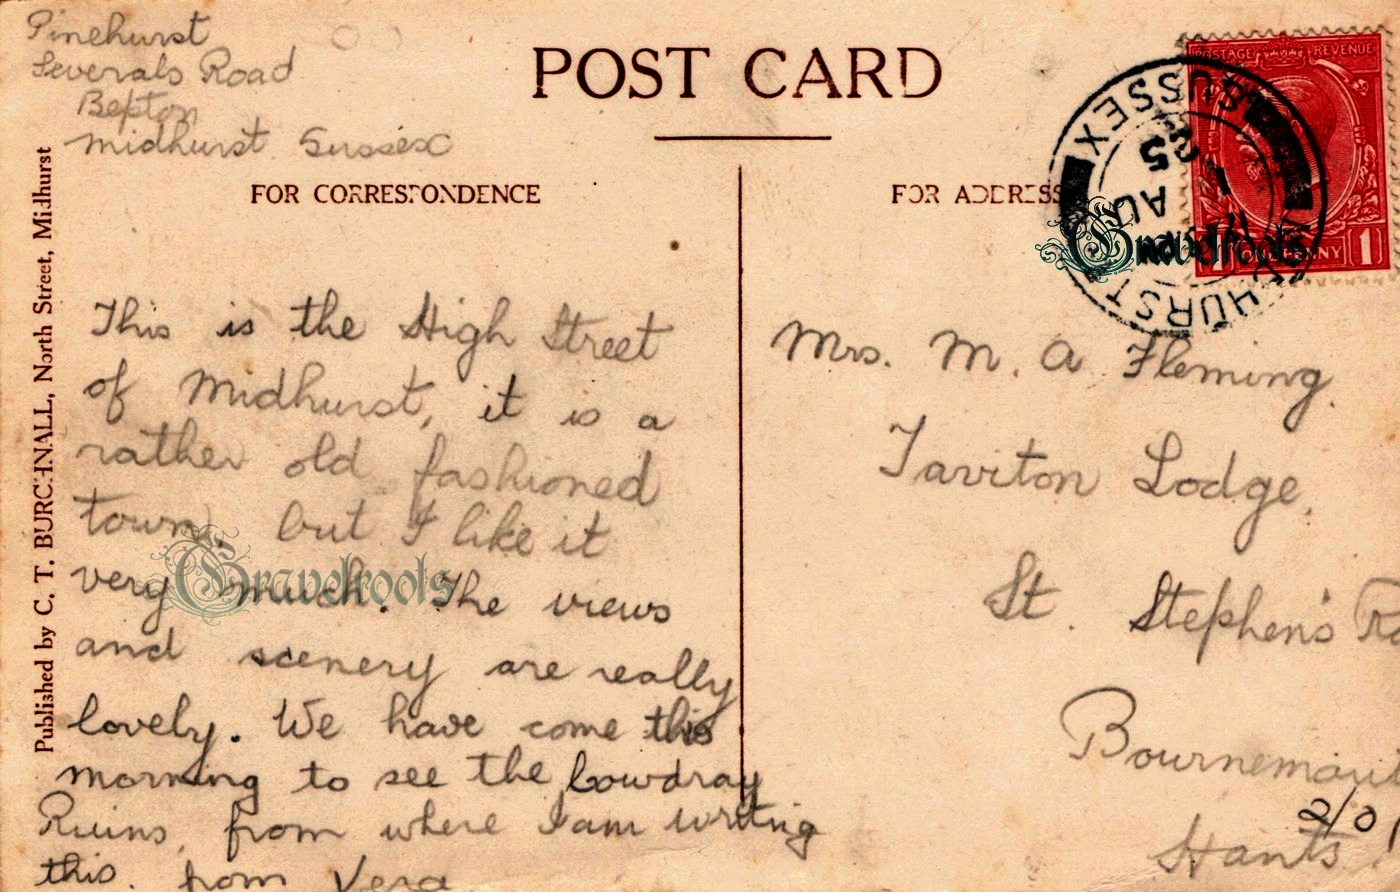 Pinehurst
Severals Road
Bepton
Midhurst. Sussex
POST CARD
FOR CORRESPONDENCE
FOR ADDRESS
This is the High Street
of Midhurst, it is a
rather old fashioned
town, but I like it
very much. The views
and scenery are really
lovely. We have come this
morning to see the Cowdray
Ruins, from where I am writing
this. from Vera
Published by C. T. BURCHNALL, North Street, Midhurst
POSTAGE REVENUE
1 PENNY 1
SUSSEX
AU
25
HURST
Mrs. M. A Fleming.
Taviton Lodge,
St. Stephen's R
Bournemout
Hants.
2/0
Gravelroots
Gravelroots